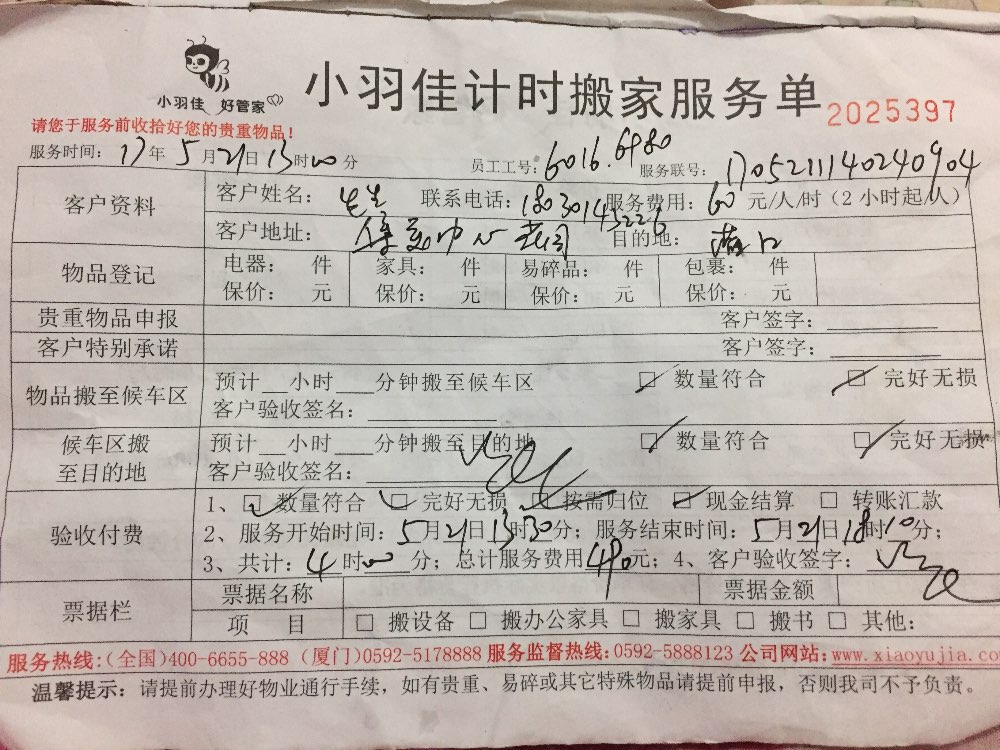 小羽佳 好管家
小羽佳计时搬家服务单 2025397
请您于服务前收拾好您的贵重物品！
服务时间：17年5月21日13时00分 员工工号：6016.6980 服务联号：1705211140240904
客户资料 客户姓名：先生 联系电话：18030143226 服务费用：60元/人/时（2小时起/人）
客户地址： 花园 目的地：
物品登记 电器： 件 家具： 件 易碎品： 件 包裹： 件
保价： 元 保价： 元 保价： 元 保价： 元
贵重物品申报 客户签字：
客户特别承诺 客户签字：
物品搬至候车区 预计 小时 分钟搬至候车区 ☑ 数量符合 ☑ 完好无损
客户验收签名：
候车区搬至目的地 预计 小时 分钟搬至目的地 ☑ 数量符合 ☑ 完好无损
客户验收签名：
验收付费 1、☑ 数量符合 ☑ 完好无损 ☑ 按需归位 ☑ 现金结算 □ 转账汇款
2、服务开始时间：5月21日13时30分；服务结束时间：5月21日18时10分；
3、共计：4时00分；总计服务费用490元；4、客户验收签字：
票据栏 票据名称 票据金额
项 目 □ 搬设备 □ 搬办公家具 □ 搬家具 □ 搬书 □ 其他：
服务热线:(全国)400-6655-888 (厦门)0592-5178888 服务监督热线:0592-5888123 公司网站:www.xiaoyujia.co
温馨提示：请提前办理好物业通行手续，如有贵重、易碎或其它特殊物品请提前申报，否则我司不予负责。